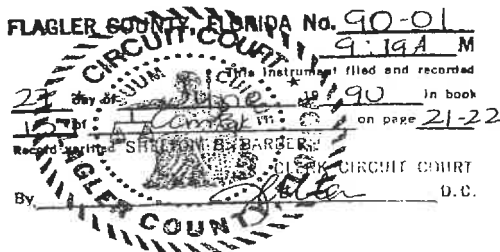 FLAGLER COUNTY, FLORIDA No. 90-01
9:19A M
This instrument filed and recorded
27 day of June 1990 in book
on page 21-22
Record verified SHELTON B. BARBER
CLERK CIRCUIT COURT
By D.C.
CIRCUIT COURT
FLAGLER COUNTY
SUUM CUI